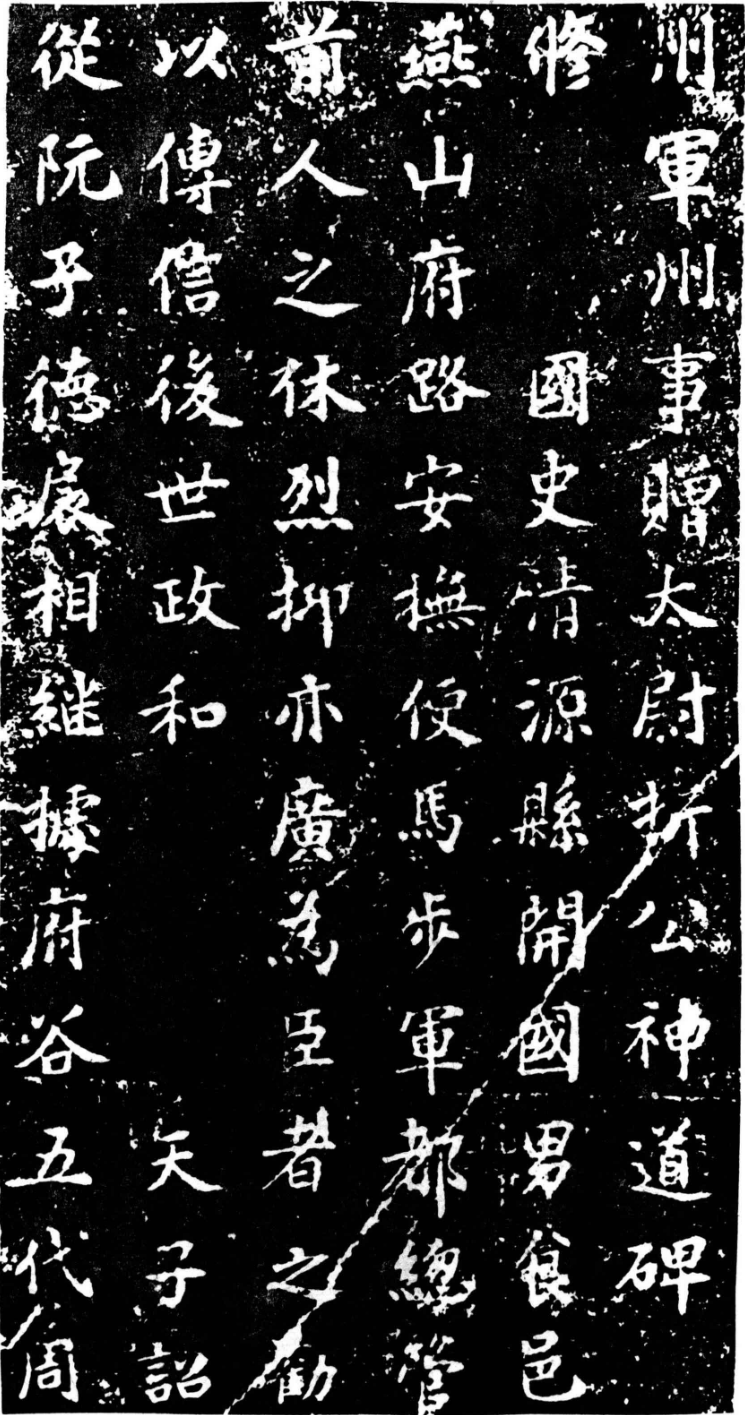 州軍州事贈太尉折公神道碑
修 國史清源縣開國男食邑
燕山府路安撫使馬步軍都總管
前人之休烈抑亦廣為臣者之勸
以傳信後世政和 天子詔
從阮子德扆相継據府谷五代周